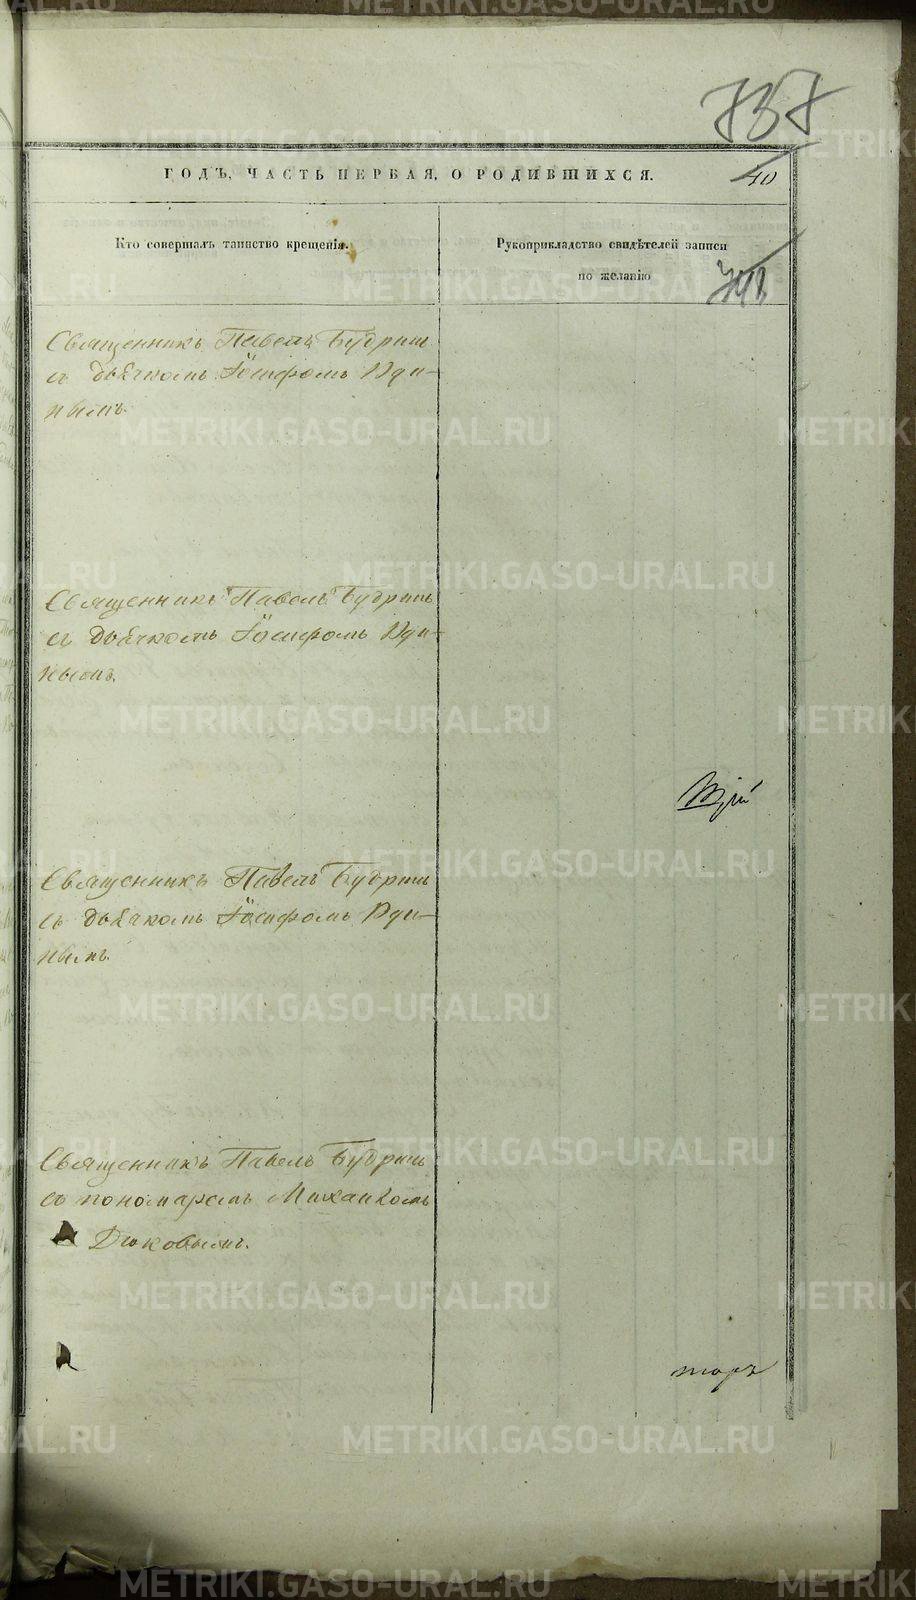 737
ГОДЪ, ЧАСТЬ ПЕРВАЯ, О РОДИВШИХСЯ.
40
Кто совершалъ таинство крещенія.
Рукоприкладство свидѣтелей записи
по желанію
Священникъ Павелъ Будринъ
съ дьячкомъ Іосифомъ Иди-
нымъ.
Священникъ Павелъ Будринъ
съ дьячкомъ Іосифомъ Иди-
нымъ.
Священникъ Павелъ Будринъ
съ дьячкомъ Іосифомъ Иди-
нымъ.
Священникъ Павелъ Будринъ
съ пономаремъ Михаиломъ
Дюковымъ.
METRIKI.GASO-URAL.RU